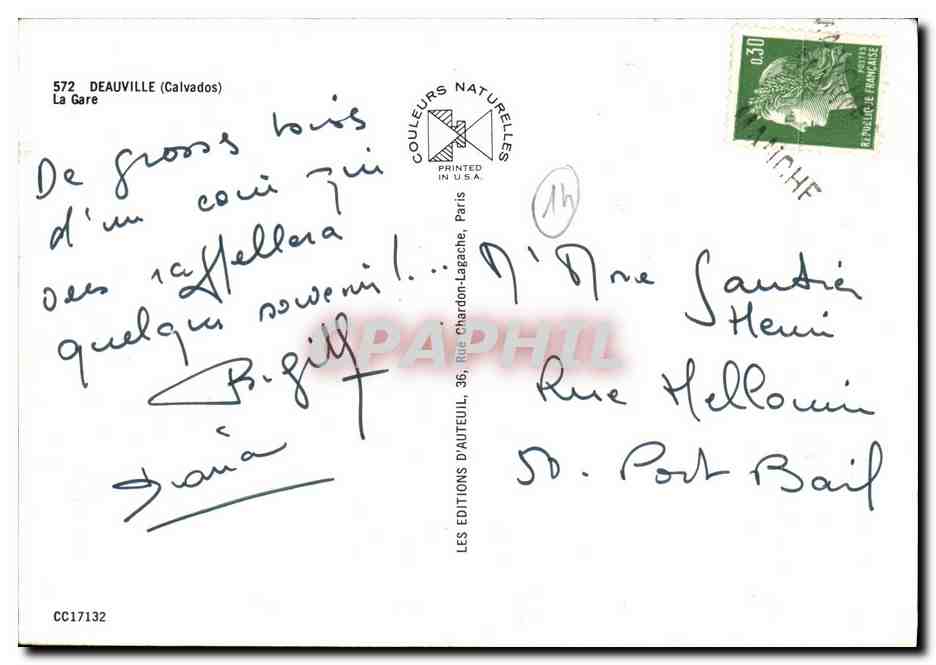 572 DEAUVILLE (Calvados)
La Gare
De grosses bises
d'un coin qui
vous rappellera
quelques souvenirs!...
B. Gill
Diana
COULEURS NATURELLES
PRINTED
IN U.S.A.
LES EDITIONS D'AUTEUIL, 36, Rue Chardon-Lagache, Paris
14
0,30
POSTES
REPUBLIQUE FRANÇAISE
MANCHE
M' Mme Gautier
Henri
Rue Hellouin
50. Port Bail
CC17132
DELCAMPHIL